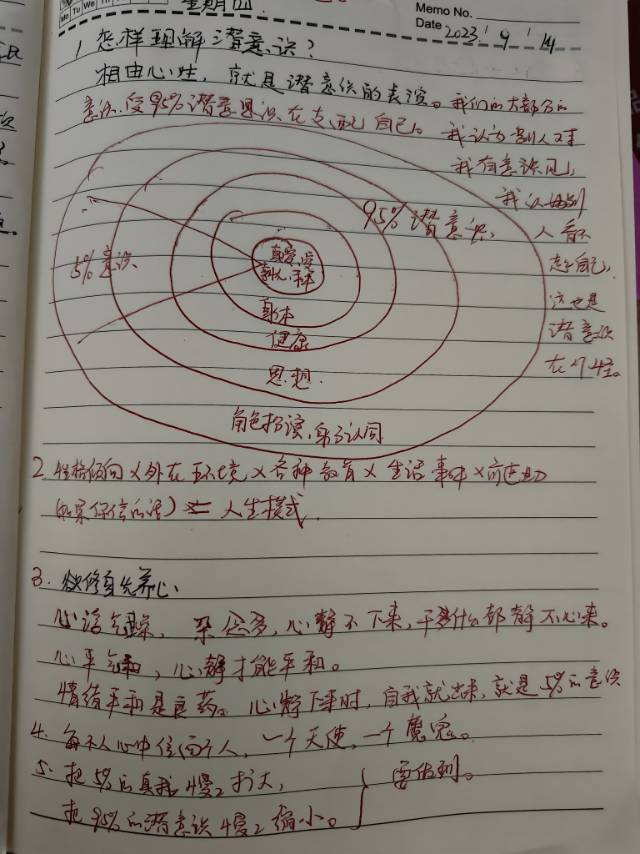 星期四
Mo Tu We Th
Memo No.
Date 2023 / 9 / 14
1. 怎样理解潜意识?
相由心性,就是潜意识的表演。我们的大部分的
意识受95%潜意思识在支配自己。我认为别人对
我有意识见,
我认为别
人看不
起自己,
这也是
潜意识
在作怪。
95%潜意识
5%意识
真爱,
本
身体
健康
思想
角色扮演,身分认同
2. 性格倾向×外在环境×各种教育×生活事件×前世
(如果你信的话)= 人生模式
3. 欲修身先养心
心浮气躁,杂念多,心静不下来,干什么都静不心来。
心平气和,心静才能平和。
情绪平和是良药。心静下来时,自我就出来,就是5%的意识
4. 每个人心中住两个人,一个天使,一个魔鬼。
5. 把5%的真我慢2扩大,
把95%的潜意识慢2缩小。
要做到。